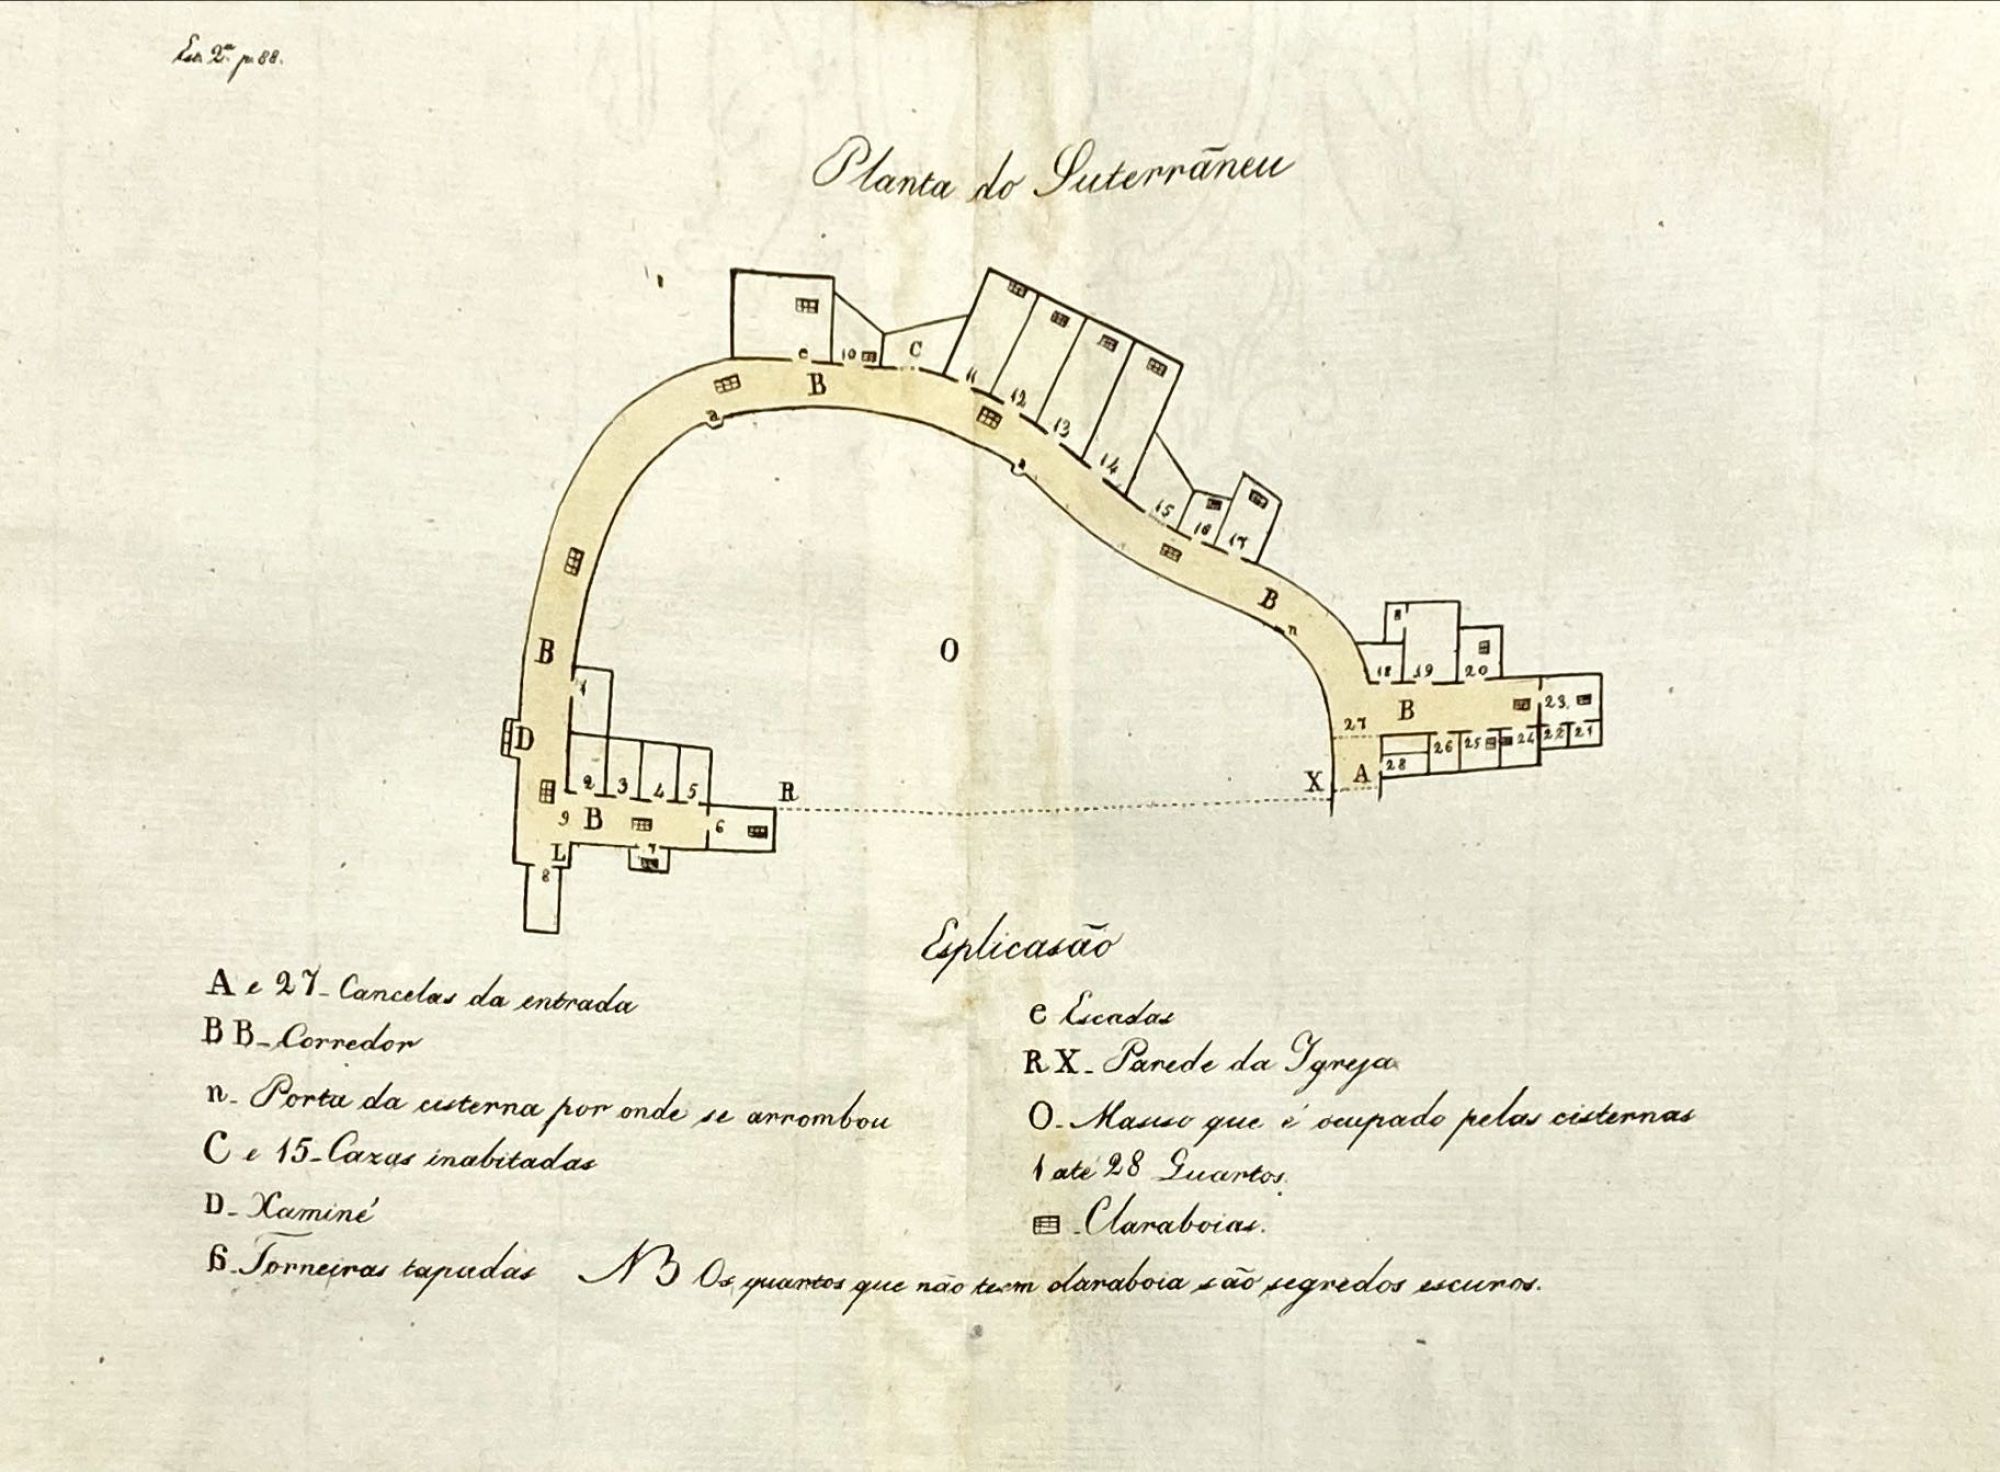 Est. 2ª p. 88.
Planta do Suterrãneu
e
10
C
B
a
11
12
13
14
15
16
17
a
B
n
B
O
8
18
19
20
1
B
23
27
D
26
25
24
22
21
28
X
A
R
2
3
4
5
9
B
6
L
7
8
Esplicasão
A e 27 - Cancelas da entrada
B B - Corredor
n - Porta da cisterna por onde se arrombou
C e 15 - Cazas inabitadas
D - Xaminé
Torneiras tapadas
e Escadas
R X - Parede da Igreja
O - Masiso que é ocupado pelas cisternas
1 até 28 Quartos.
- Claraboias.
NB Os quartos que não tem claraboia são segredos escuros.